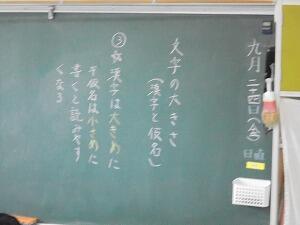 九月二十四日(金)
日直
文字の大きさ
(漢字と仮名)
③漢字は大きめに
平仮名は小さめに
書くと読みやす
くなる